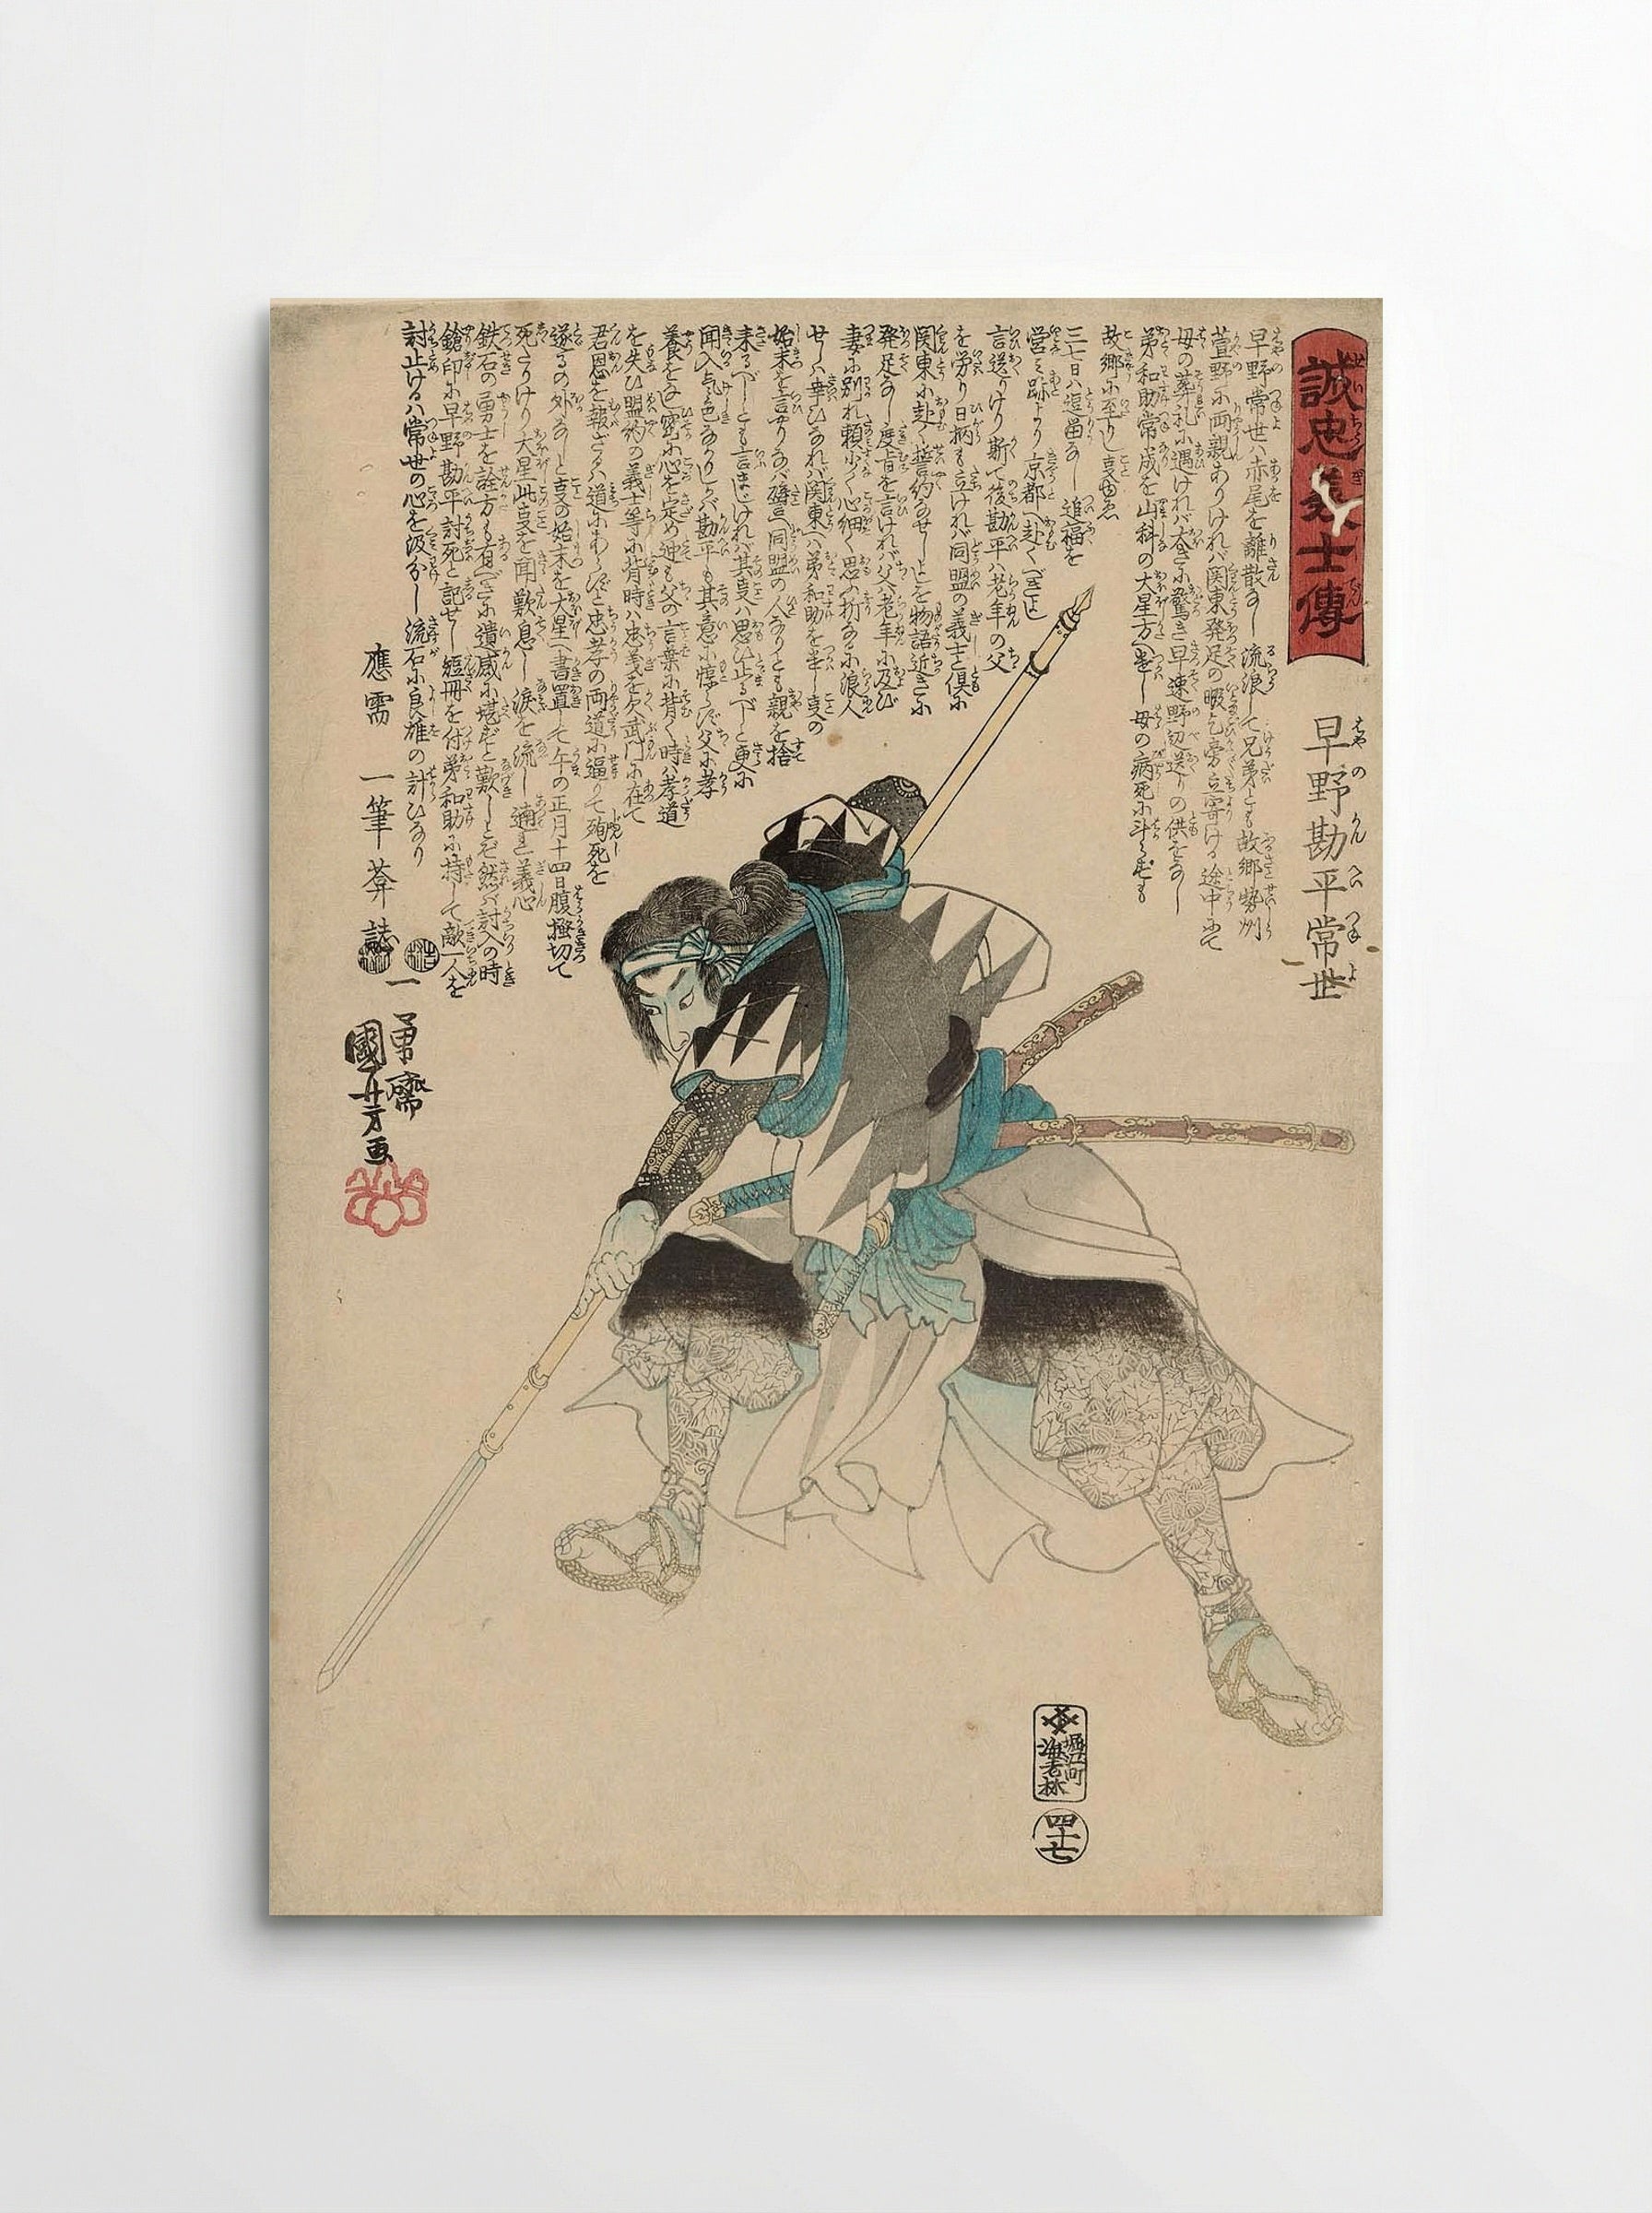 誠忠義士傳
早野勘平常世
早野常世ハ赤尾を離散なし流浪して兄弟とも故郷勢州
萱野に両親ありけれバ関東発足の暇乞旁立寄ける途中にて
母の葬礼に遇けれバ大きに驚き早速野辺送りの供をなし
弟和助常成を山科の大星方へ走し母の病死に斗らずも
故郷に至りし事ゆゑ
三七日ハ逗留なし追福を
営ミ跡より京都へ赴くべきよし
言送りけり斯て後勘平ハ老年の父
を労り日柄も立けれバ同盟の義士と倶に
関東に赴く誓約なせしよしを物語近きに
発足なし度旨を言けれバ父ハ老年に及び
妻に別れ頼少く心細く思ふ折なるに浪人
せしハ幸ひなれバ関東へハ弟和助を走し事の
始末を言やりなバ縦へ同盟の人なりとも親を捨
来るべしとも言まじけれバ其事ハ思ひ止るべしと更に
聞入る気色なかりしかバ勘平も其意に惇らず父に孝
養をなし密に心を定め迚も父の言葉に背く時ハ孝道
を失ひ盟約の義士等に背時ハ忠義を欠武門に在て
君恩を報ざるハ道にあらずと忠孝の両道に逼りて殉死を
遂るの外なしと事の始末を大星へ書置して午の正月十四日腹掻切て
死たりけり大星此事を聞歎息し涙を流し適ま義心
鉄石の勇士を詮方も有べきに遺感に堪ずと歎しとぞ然バ討入の時
鎗印に早野勘平討死と記せし短冊を付弟和助に持して敵一人を
討止けるハ常世の心を汲分し流石に良雄の計ひなり
應需 一筆葊誌
一勇齋
國芳画
堀江町
海老林
四十七